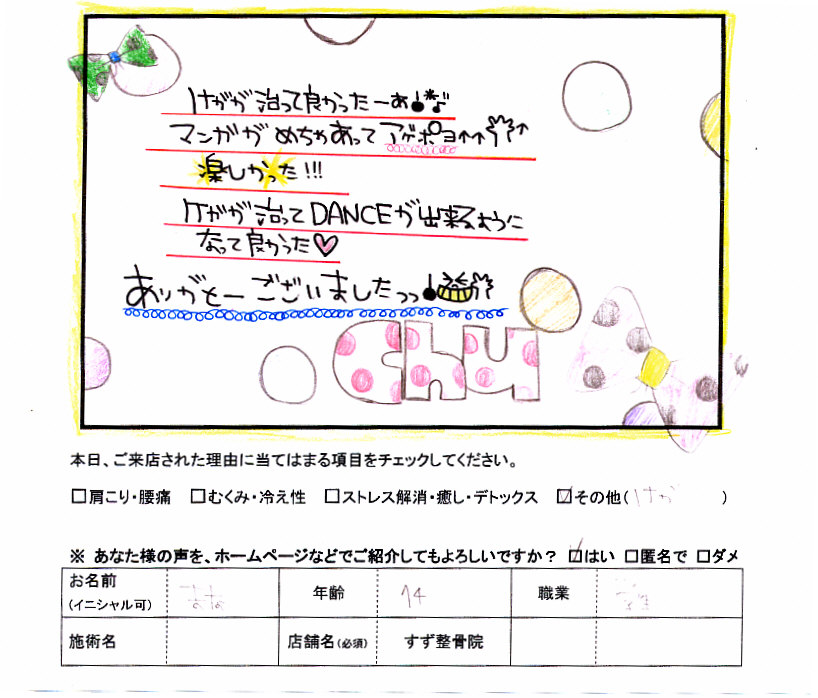 けがが治って良かったーぁ!
マンガがめちゃあってアゲポヨ↑↑↑
楽しかった!!!
ケガが治ってDANCEが出来るように
なって良かった♡
ありがとーございましたっっ!
chu
本日、ご来店された理由に当てはまる項目をチェックしてください。
□肩こり・腰痛 □むくみ・冷え性 □ストレス解消・癒し・デトックス ☑その他(けが)
※ あなた様の声を、ホームページなどでご紹介してもよろしいですか? ☑はい □匿名で □ダメ
お名前 年齢 14 職業 学生
(イニシャル可)
施術名 店舗名(必須) すず整骨院